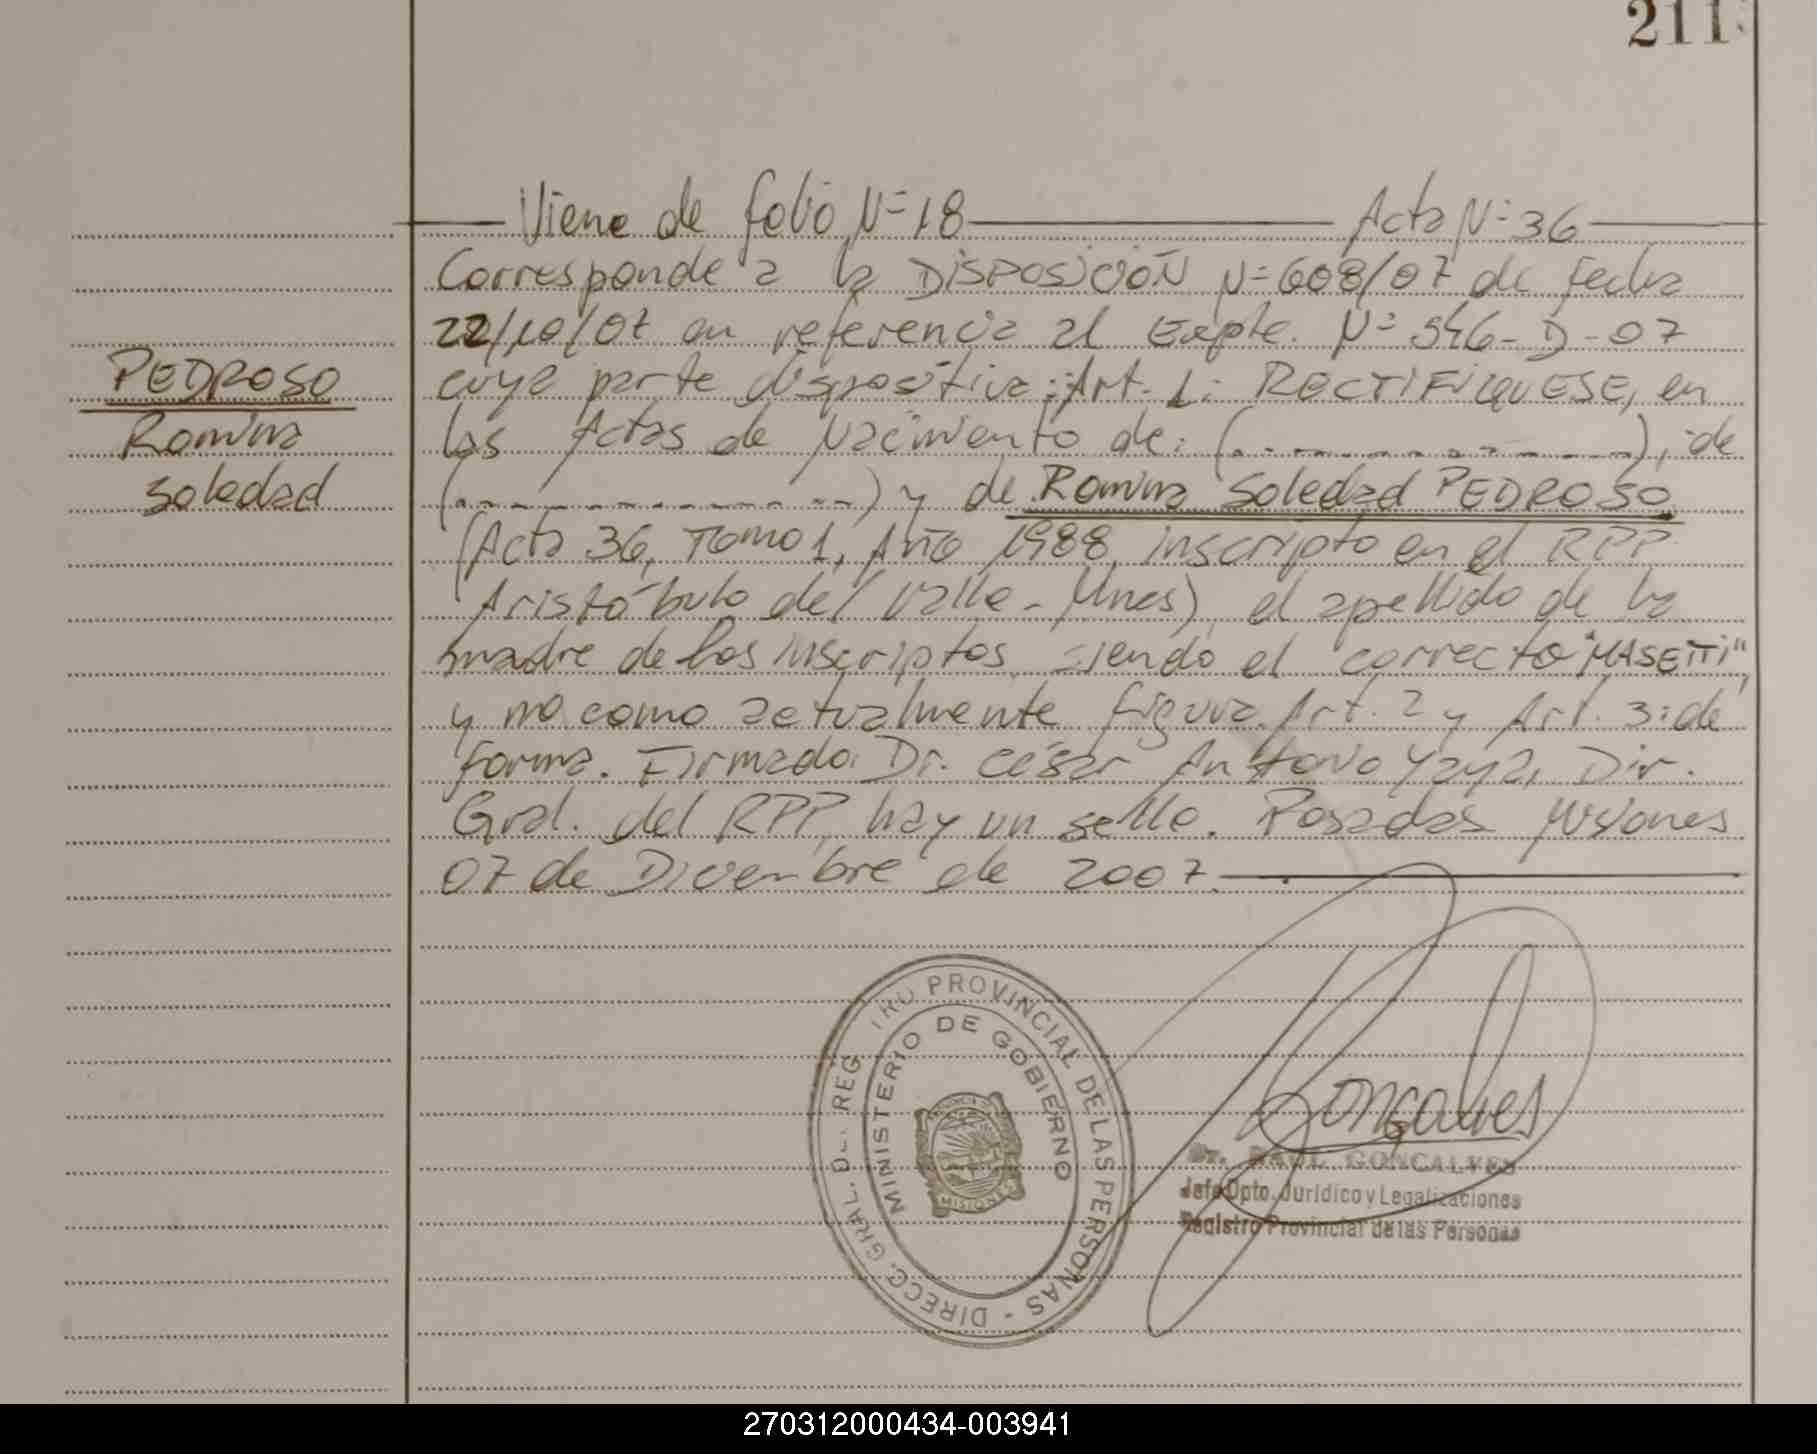 211
Viene de folio N=18 Acta N=36
Corresponde a la DISPOSICIÓN N=608/07 de fecha
22/10/07 en referencia al Expte. N= 546-D-07
cuya parte dispositiva: Art. 1: RECTIFIQUESE, en
PEDROSO
las Actas de Nacimiento de: (- - - - - - - - - - -), de
Romina
(- - - - - - - - - - -) y de Romina Soledad PEDROSO
Soledad
(Acta 36, Tomo 1, Año 1988, inscripto en el RPP
Aristóbulo del Valle - Mnes) el apellido de la
madre de los inscriptos siendo el correcto "MASETTI",
y no como actualmente figura. Art. 2 y Art. 3: de
forma. Firmado: Dr. César Antonio Yaya, Dir.
Gral. del RPP, hay un sello. Posadas Misiones
07 de Diciembre de 2007.
DIRECC. GRAL. DEL REG TRO PROVINCIAL DE LAS PERSONAS -
MINISTERIO DE GOBIERNO
PROVINCIA DE
MISIONES
Goncalves
Dr. RAUL GONCALVES
Jefe Dpto. Jurídico y Legalizaciones
Registro Provincial de las Personas
270312000434-003941